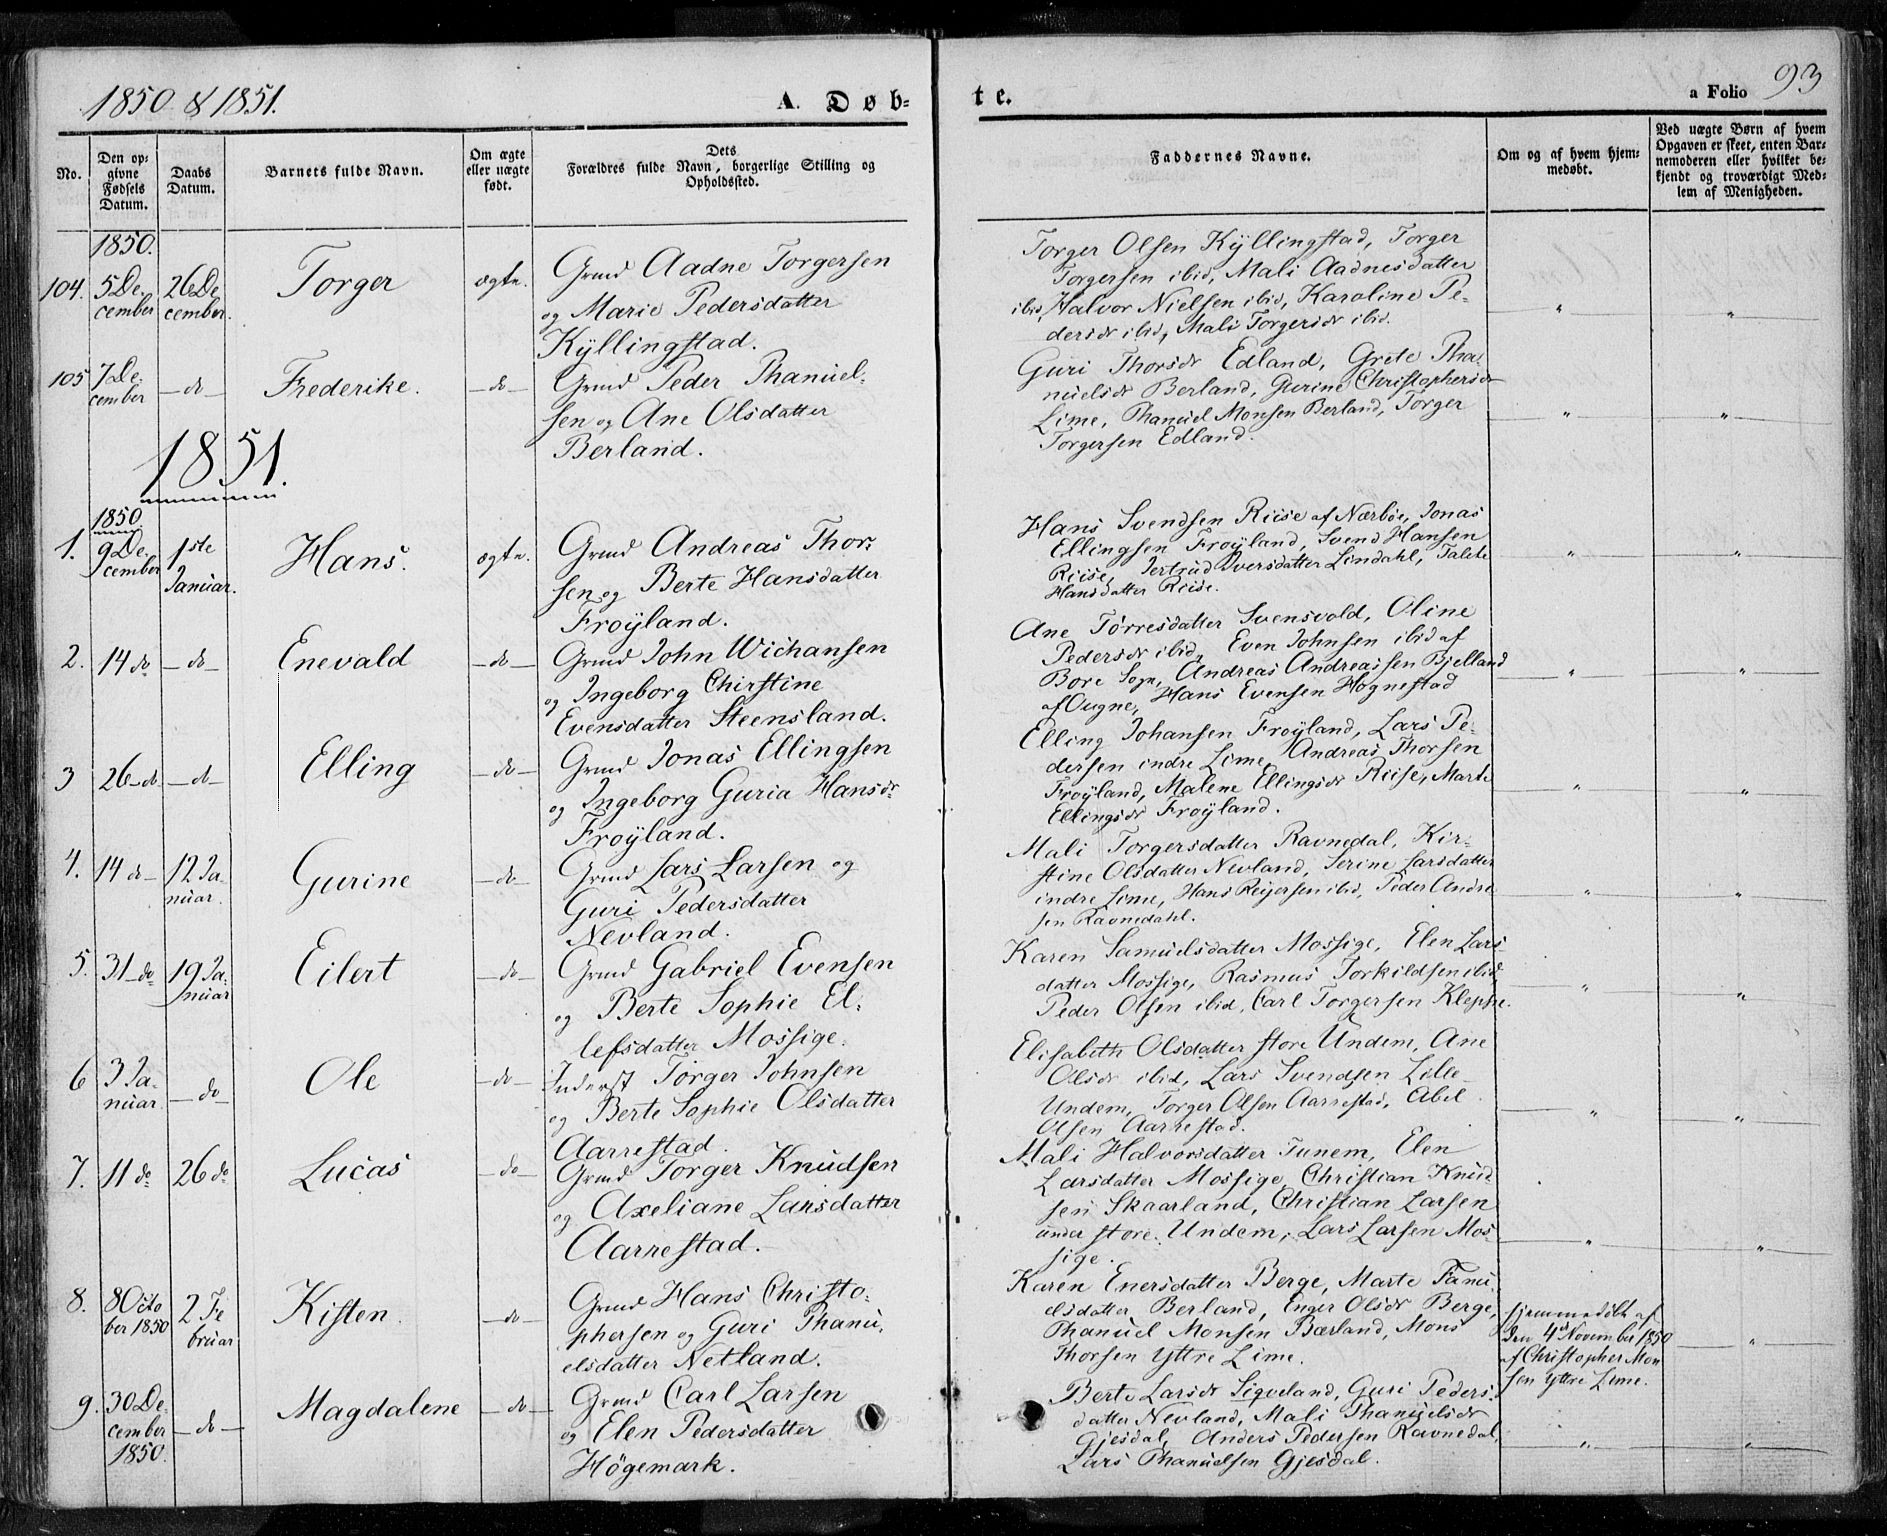 1850 & 1851.
A. Døb-
te.
a Folio 93
No.
Den op-
givne
Fødsels
Datum.
Daabs
Datum.
Barnets fulde Navn.
Om ægte
eller uægte
født.
Dets
Forældres fulde Navn, borgerlige Stilling og
Opholdssted.
Faddernes Navne.
Om og af hvem hjem-
medøbt.
Ved uægte Børn af hvem
Opgaven er skeet, enten Bar-
nemoderen eller hvilket be-
kjendt og troværdigt Med-
lem af Menigheden.
1850.
104. 5 De-
cember
26 De
cember.
Torger
ægte.
Grmd Aadne Torgersen
og Marie Pedersdatter
Kÿllingstad.
Torger Olsen Kÿllingstad, Torger
Torgersen ibid, Mali Aadnesdatter
ibid, Halvor Nielsen ibid, Karoline Pe-
dersdr ibid, Mali Torgersdr ibid.
" "
105 7 De-
cember
- do -
Frederike.
- do -
Grmd Peder Thanuel-
sen og Ane Olsdatter
Berland.
Guri Thorsdr Edland, Grete Tha-
nuelsdr Berland, Gurine Christophersdr
Lime, Thanuel Monsen Berland, Torger
Torgersen Edland.
" "
1851.
1850
1. 9 De-
cember
1ste
Januar.
Hans.
ægte.
Grmd Andreas Thor-
sen og Berte Hansdatter
Froÿland.
Hans Svendsen Riise af Nærbøe, Jonas
Ellingsen Froÿland, Svend Hansen
Riise, Jertrud Iversdatter Lindahl, Talete
Hansdatter Riise.
" "
2. 14 do - do -
Enevald
- do -
Grmd John Wichansen
og Ingeborg Chirstine
Evensdatter Steensland.
Ane Tørresdatter Svensvold, Oline
Pedersdr ibid, Even Johnsen ibid af
Bore Sogn, Andreas Andreassen Bjelland
af Ougne, Hans Evensen Høgnestad
" "
3 26 do - do -
Elling
- do -
Grmd Jonas Ellingsen
og Ingeborg Guria Hansdr
Froÿland.
Elling Johansen Froÿland, Lars Pe-
dersen indre Lime, Andreas Thorsen
Froÿland, Malene Ellingsdr Riise, Marte
Ellingsdr Froÿland.
" "
4. 14 do - 12 Ja-
nuar.
Gurine
- do -
Grmd Lars Larsen og
Guri Pedersdatter
Nevland.
Mali Torgersdatter Ravnedal, Kir-
stine Olsdatter Nevland, Serine Larsdatter
indre Lime, Hans Reijersen ibid, Peder Andre
sen Ravnedahl.
" "
5. 31 do 19 Ja-
nuar
Eilert
- do -
Grmd Gabriel Evensen
og Berte Sophie El-
lefsdatter Mossige.
Karen Samuelsdatter Mossige, Elen Lars
datter Mossige, Rasmus Torkildsen ibid,
Peder Olsen ibid, Carl Torgersen Kleppe.
" "
6 3 Ja-
nuar.
- do -
Ole
- do -
Inderst Torger Johnsen
og Berte Sophie Olsdatter
Aarrestad.
Elisabeth Olsdatter store Undem, Ane
Olsdr ibid, Lars Svendsen Lille
Undem, Torger Olsen Aarrestad, Abel
Olsen Aarrestad.
" "
7. 11 do 26 do
Lucas
- do -
Grmd Torger Knudsen
og Axeliane Larsdatter
Aarrestad.
Mali Halvorsdatter Tunem, Elen
Larsdatter Mossige, Christian Knud
sen Skaarland, Christian Larsen
under store Undem, Lars Larsen Mos-
sige.
" "
8. 8 Octo
ber 1850
2 Fe
bruar
Kisten.
- do -
Grmd Hans Christo-
phersen og Guri Thanu-
elsdatter Netland.
Karen Enersdatter Berge, Marte Tanu
elsdatter Berland, Enger Olsdr Berge,
Thanuel Monsen Bærland, Mons
Thorsen Yttre Lime.
hjemmedøbt af
den 4de November 1850
af Christopher Mon
sen Yttre Lime.
"
9. 30 De-
cember
1850.
- do -
Magdalene
- do -
Grmd Carl Larsen
og Elen Pedersdatter
Högemark.
Berte Larsdr Sigveland, Guri Peders-
datter Nevland, Mali Thanuelsdr
Gjesdal, Anders Pedersen Ravnedal,
Lars Thanuelsen Gjesdal.
" "